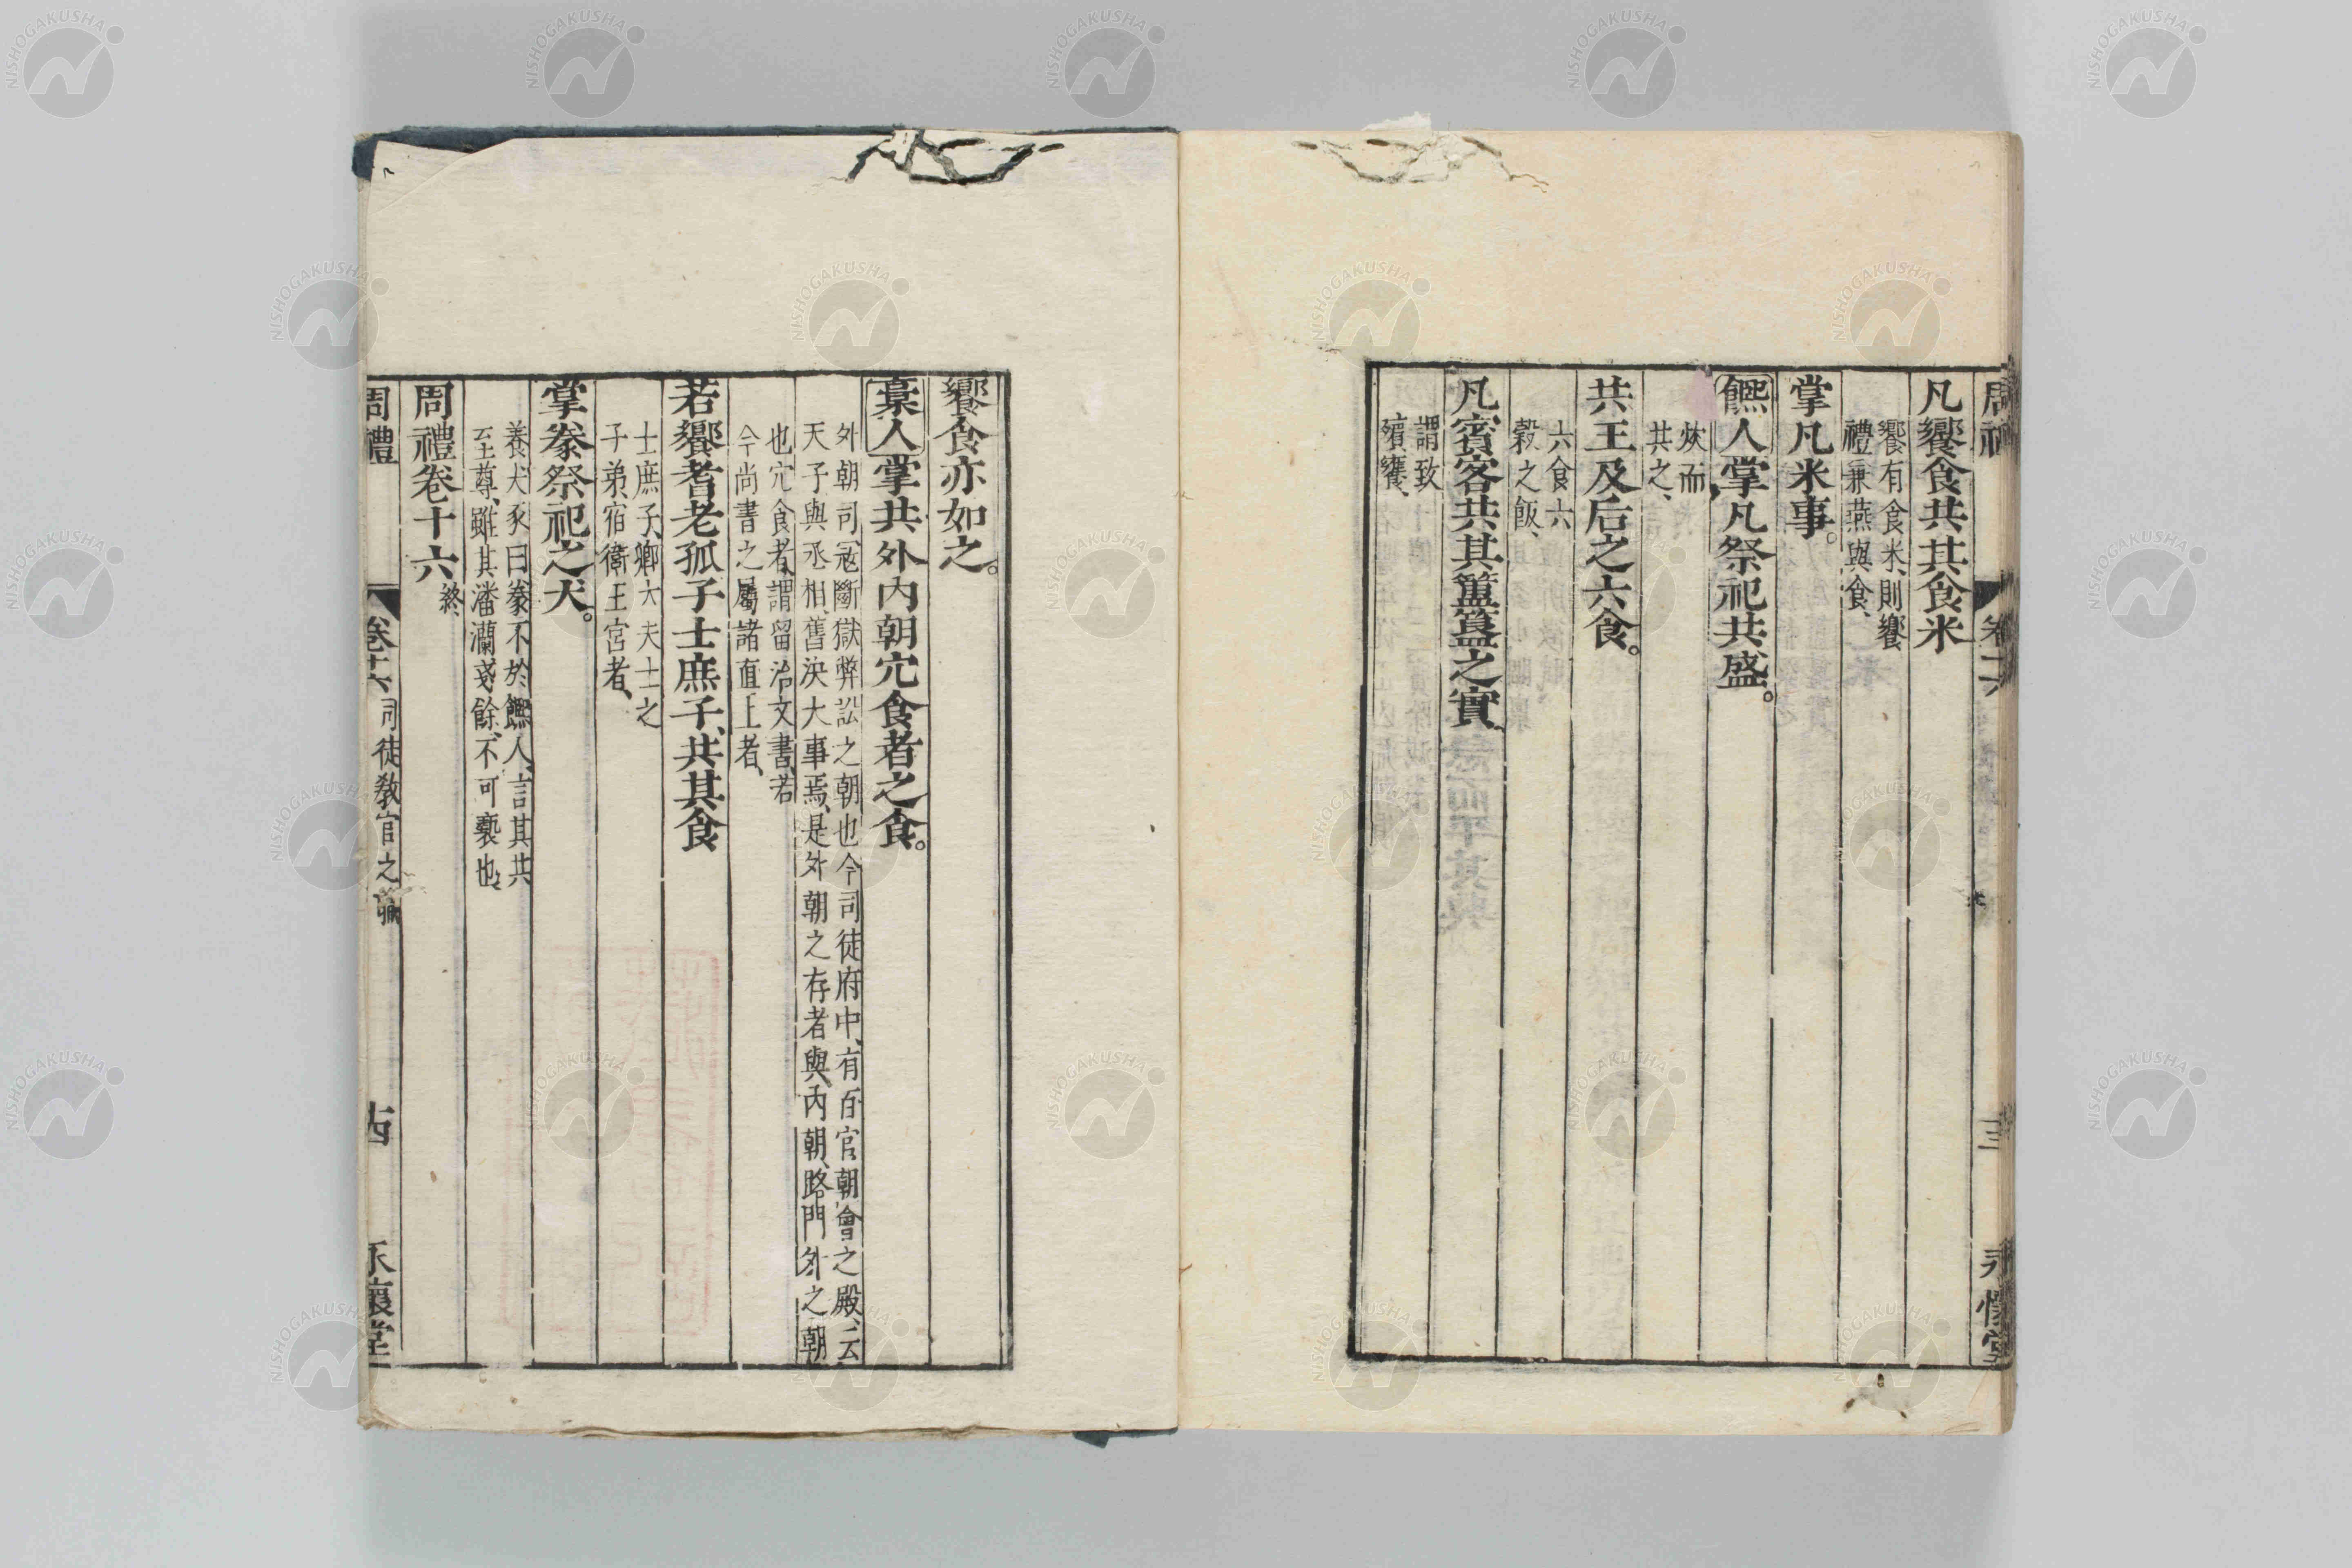 周禮
卷十六
十三
永懷堂
凡饗食共其食米
饗有食米、則饗
禮兼燕與食、
掌凡米事。
饎人掌凡祭祀共盛。
炊而
共之、
共王及后之六食。
六食六
穀之飯、
凡賓客共其簠簋之實、
謂致
飧饔、
饗食亦如之。
槀人掌共外內朝宂食者之食。
外朝司寇斷獄弊訟之朝也今司徒府中、有百官朝會之殿、云
天子與丞相、舊決大事焉、是外朝之存者與、內朝、路門外之朝
也宂食者、謂留治文書、若
今尚書之屬諸直上者、
若饗耆老孤子士庶子、共其食
士庶子、卿大夫士之
子弟、宿衛王宮者、
掌豢祭祀之犬。
養犬豕曰豢不於饎人、言其共
至尊、雖其潘瀾戔餘、不可褻也、
周禮卷十六 終
周禮
卷十六
司徒敎官之職
十四
永懷堂
NISHOGAKUSHA